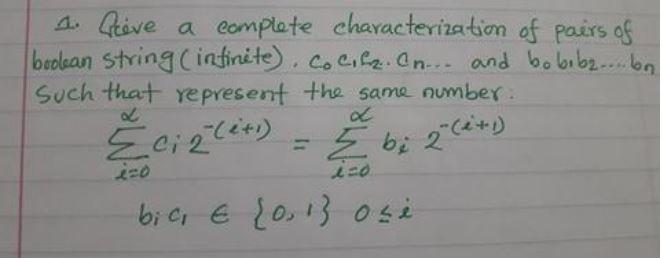 1. Give a complete characterization of pairs of
boolean string (infinite), c₀ c₁ c₂. cₙ... and b₀b₁b₂....bₙ
Such that represent the same number:
∑_{i=0}^{α} cᵢ 2^{-(i+1)} = ∑_{i=0}^{α} bᵢ 2^{-(i+1)}
bᵢ cᵢ ∈ {0,1} 0≤i